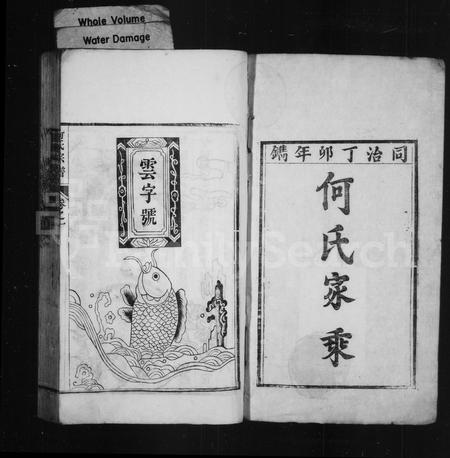 Whole Volume
Water Damage
同治丁卯年鐫
何氏家乘
雲字號
FamilySearch